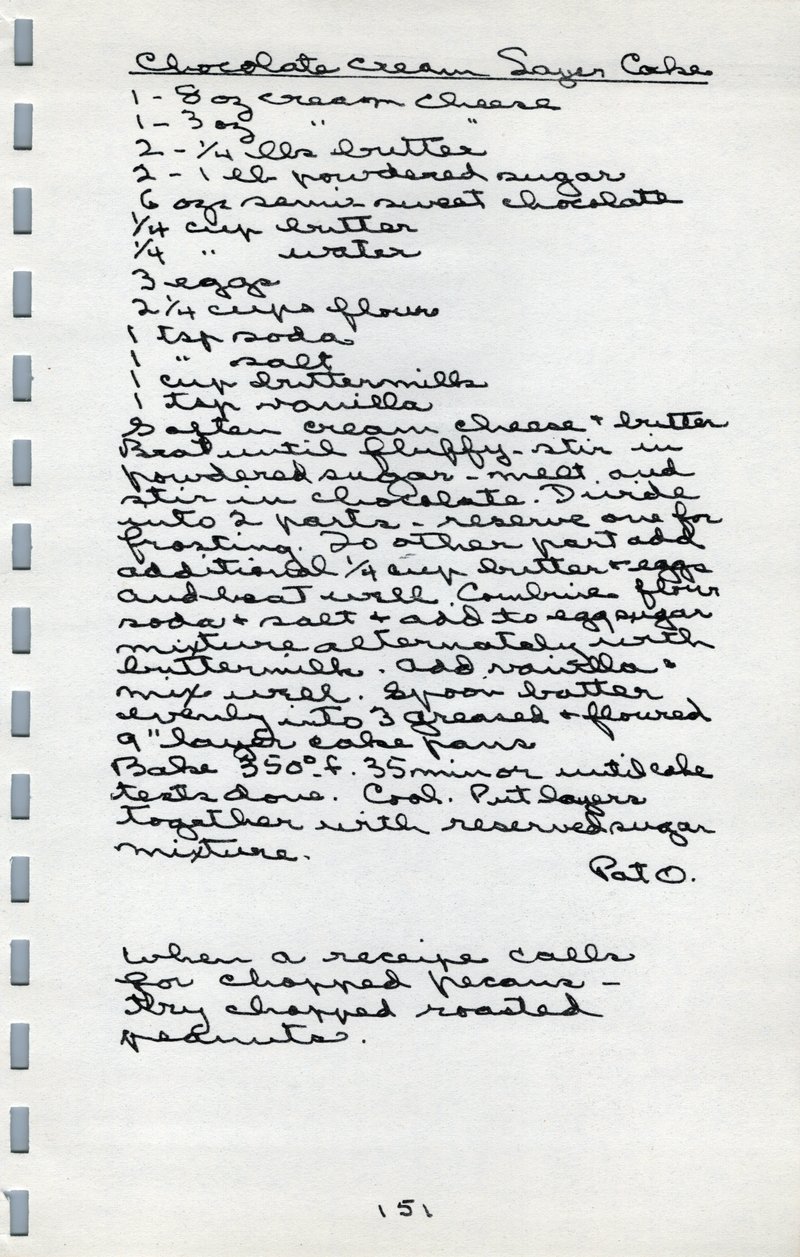 Chocolate Cream Layer Cake
1 - 8 oz cream cheese
1 - 3 oz " "
2 - 1/4 lbs butter
2 - 1 lb powdered sugar
6 ozs semi-sweet chocolate
1/4 cup butter
1/4 " water
3 eggs
2 1/4 cups flour
1 tsp soda
1 " salt
1 cup buttermilk
1 tsp vanilla
Soften cream cheese + butter
Beat until fluffy - stir in
powdered sugar - melt and
stir in chocolate. Divide
into 2 parts - reserve one for
frosting. To other part add
additional 1/4 cup butter + eggs
and beat well. Combine flour
soda + salt + add to egg sugar
mixture alternately with
buttermilk. Add vanilla &
mix well. Spoon batter
evenly into 3 greased + floured
9" layer cake pans
Bake 350° f. 35 min or until cake
tests done. Cool. Put layers
together with reserved sugar
mixture.
Pat O.
When a receipe calls
for chopped pecans -
try chopped roasted
peanuts.
151